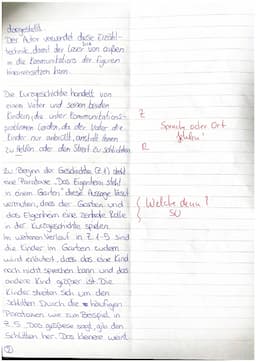 dargestellt.
Der Autor verwendet diese Erzähl-
technik, damit der Leser sich von außen
in die Kommunikations der Figuren
hineinversetzen kann.
Die Kurzgeschichte handelt von
einem Vater und seinen beiden
Kindern, die unter Kommunikations-
problemen, da der Vater die
Kinder nur anbrüllt, anstatt ihnen
zu helfen oder den Streit zu schlichten.
Z
Sprache oder Ort
R
Zu Beginn der Geschichte (Z.1) steht
eine Parataxe „Das Eigenheim steht
in einem Garten" diese Aussage lässt
vermuten, dass der Garten und
das Eigenheim eine zentrale Rolle
in der Kurzgeschichte spielen.
Welche denn?
SÜ
Im weiteren Verlauf in Z. 1-5 sind
die Kinder im Garten zudem
wird erläutert, dass das eine Kind
noch nicht sprechen kann und das
andere Kind größer ist. Die
Kinder streiten sich um den
Schlitten. Durch die häufigen
Parataxen wie zum Beispiel in
Z. 5 „Das größere sagt, gib den
Schlitten her. Das kleinere weint
①